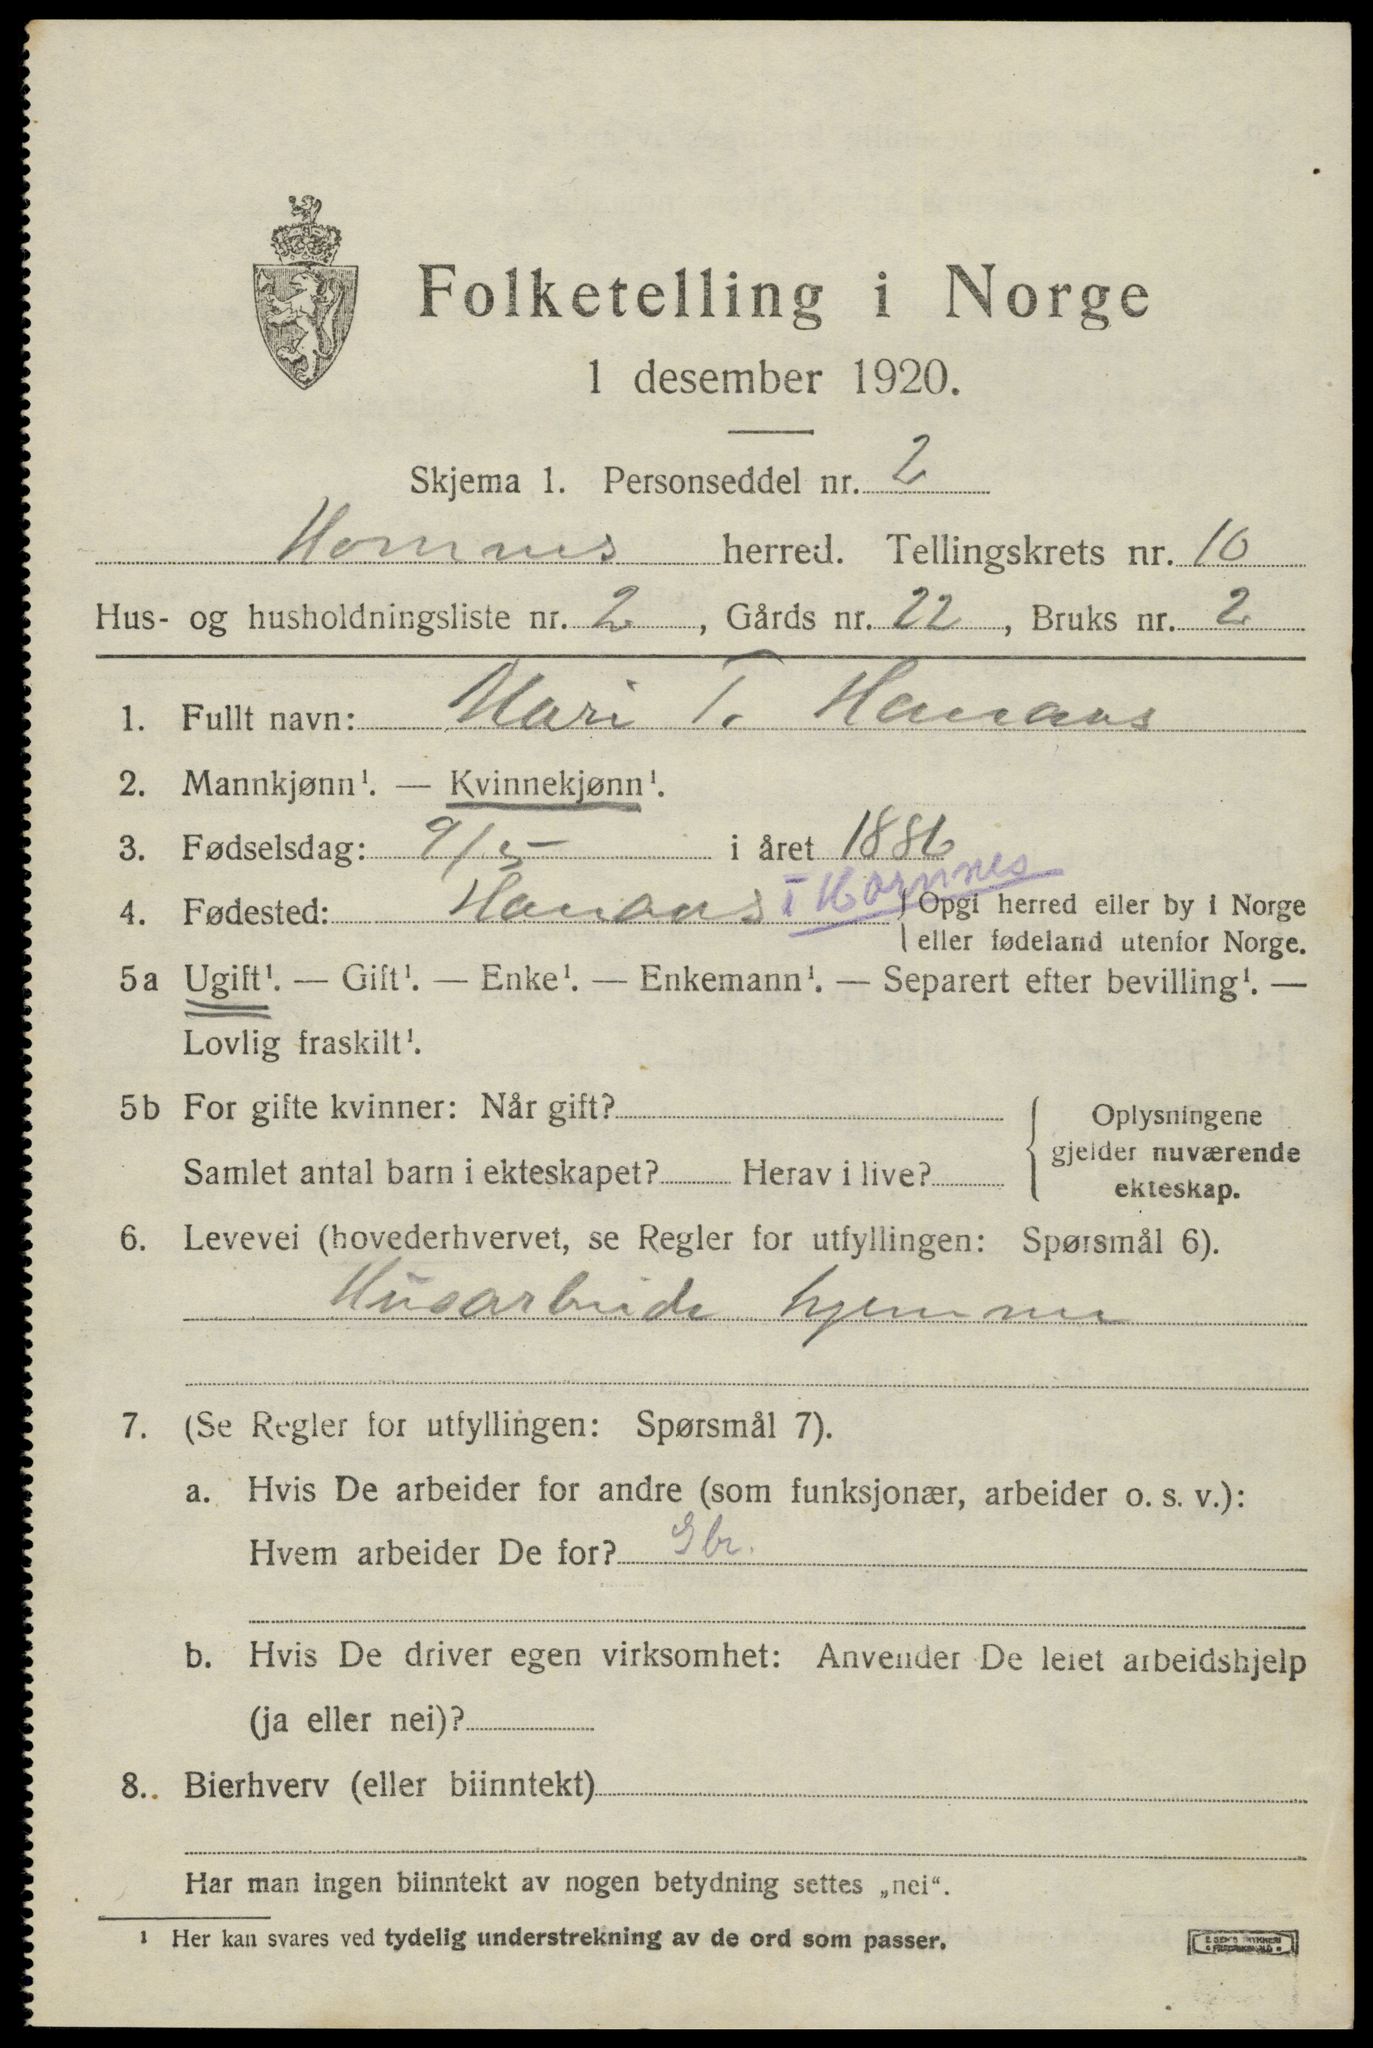 Folketelling i Norge
1 desember 1920.
Skjema 1. Personseddel nr. 2
Hornnes herred. Tellingskrets nr. 10
Hus- og husholdningsliste nr. 2, Gårds nr. 22, Bruks nr. 2
1. Fullt navn: Mari T. Hanaas
2. Mannkjønn¹. — Kvinnekjønn¹.
3. Fødselsdag: 9/5- i året 1886
4. Fødested: Hanaas i Hornnes Opgi herred eller by i Norge
eller fødeland utenfor Norge.
5a Ugift¹. — Gift¹. — Enke¹. — Enkemann¹. — Separert efter bevilling¹. —
Lovlig fraskilt¹.
5b For gifte kvinner: Når gift?
Samlet antal barn i ekteskapet? Herav i live?
Oplysningene
gjelder nuværende
ekteskap.
6. Levevei (hovederhvervet, se Regler for utfyllingen: Spørsmål 6).
Husarbeide hjemme
7. (Se Regler for utfyllingen: Spørsmål 7).
a. Hvis De arbeider for andre (som funksjonær, arbeider o. s. v.):
Hvem arbeider De for? Gbr.
b. Hvis De driver egen virksomhet: Anvender De leiet arbeidshjelp
(ja eller nei)?
8. Bierhverv (eller biinntekt)
Har man ingen biinntekt av nogen betydning settes „nei“.
¹ Her kan svares ved tydelig understrekning av de ord som passer.